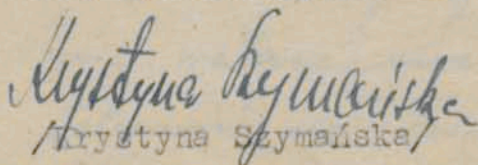 Krystyna Szymańska
/Krystyna Szymańska/